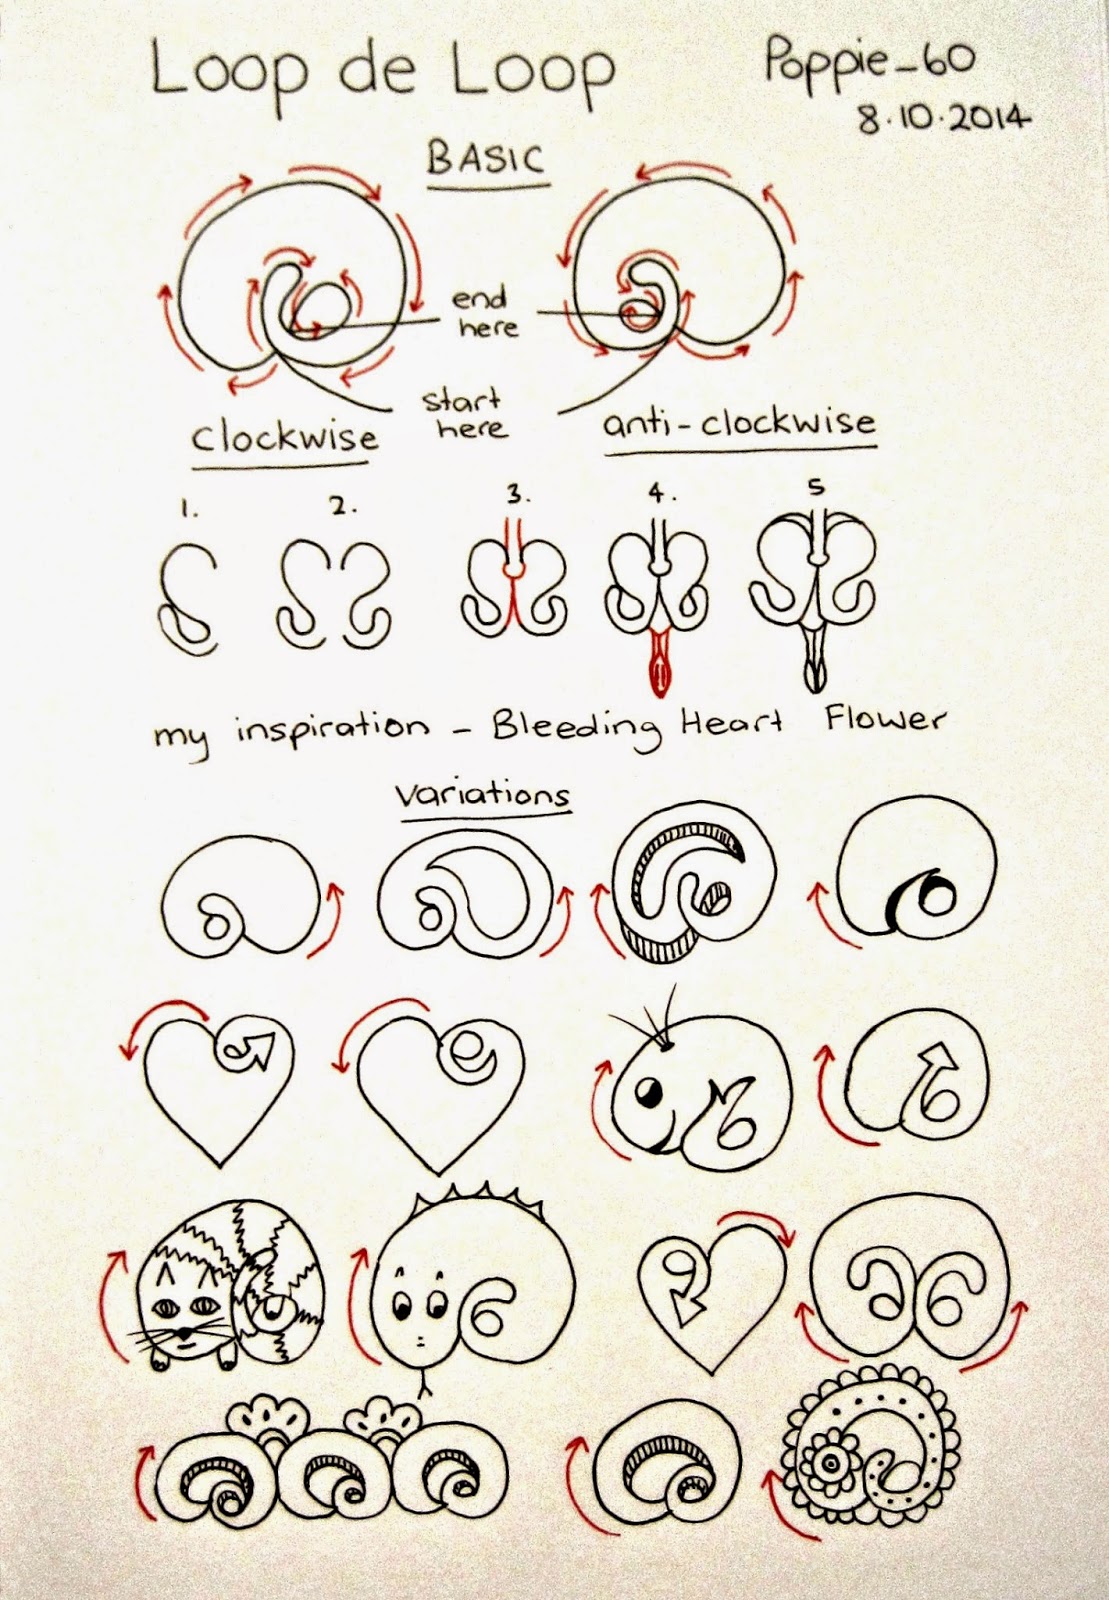 Loop de Loop
Poppie_60
8.10.2014
BASIC
end
here
start
here
clockwise
anti-clockwise
1.
2.
3.
4.
5
my inspiration - Bleeding Heart Flower
variations